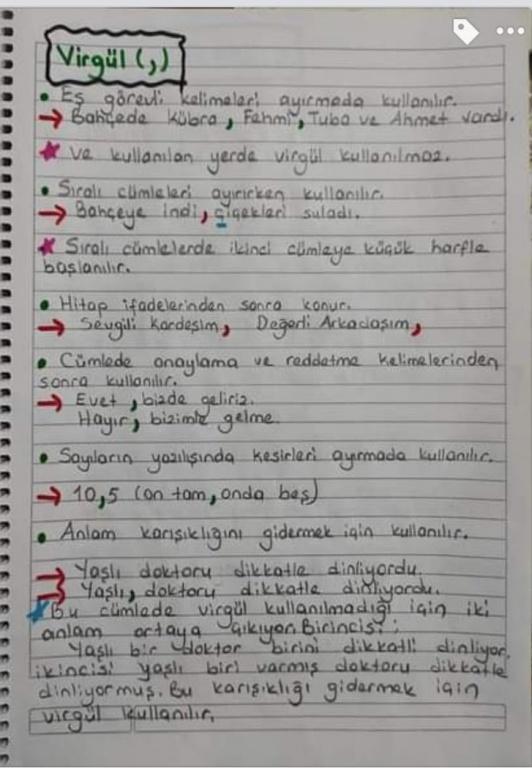 Virgül (,)
• Eş görevli kelimeleri ayırmada kullanılır.
→ Bahçede Kübra, Fehmi, Tuba ve Ahmet vardı.
★ Ve kullanılan yerde virgül kullanılmaz.
• Sıralı cümleleri ayırırken kullanılır.
→ Bahçeye indi, çiçekleri suladı.
★ Sıralı cümlelerde ikinci cümleye küçük harfle
başlanılır.
• Hitap ifadelerinden sonra konur.
→ Sevgili Kardeşim, Değerli Arkadaşım,
• Cümlede onaylama ve reddetme kelimelerinden
sonra kullanılır.
→ Evet, bizde geliriz.
Hayır, bizimle gelme.
• Sayıların yazılışında kesirleri ayırmada kullanılır.
→ 10,5 (on tam, onda beş)
• Anlam karışıklığını gidermek için kullanılır.
→ Yaşlı doktoru dikkatle dinliyordu.
→ Yaşlı, doktoru dikkatle dinliyordu.
★ Bu cümlede virgül kullanılmadığı için iki
anlam ortaya çıkıyor. Birincisi;
Yaşlı bir doktor birini dikkatli dinliyor,
ikincisi yaşlı biri varmış doktoru dikkatle
dinliyormuş. Bu karışıklığı gidermek için
virgül kullanılır.